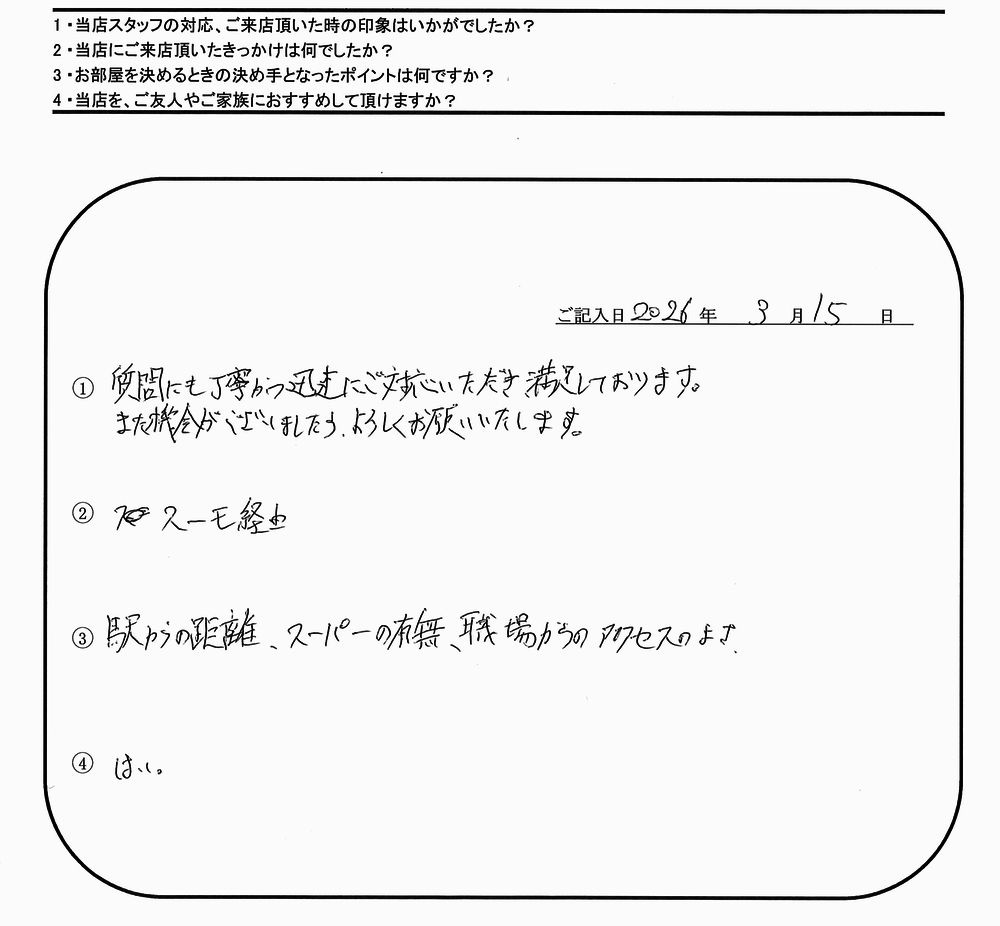 1・当店スタッフの対応、ご来店頂いた時の印象はいかがでしたか？
2・当店にご来店頂いたきっかけは何でしたか？
3・お部屋を決めるときの決め手となったポイントは何ですか？
4・当店を、ご友人やご家族におすすめして頂けますか？
ご記入日 2026 年 3 月 15 日
① 質問にも丁寧かつ迅速にご対応いただき満足しております。
また機会がございましたら、よろしくお願いいたします。
② スーモ経由
③ 駅からの距離、スーパーの有無、職場からのアクセスのよさ.
④ はい。